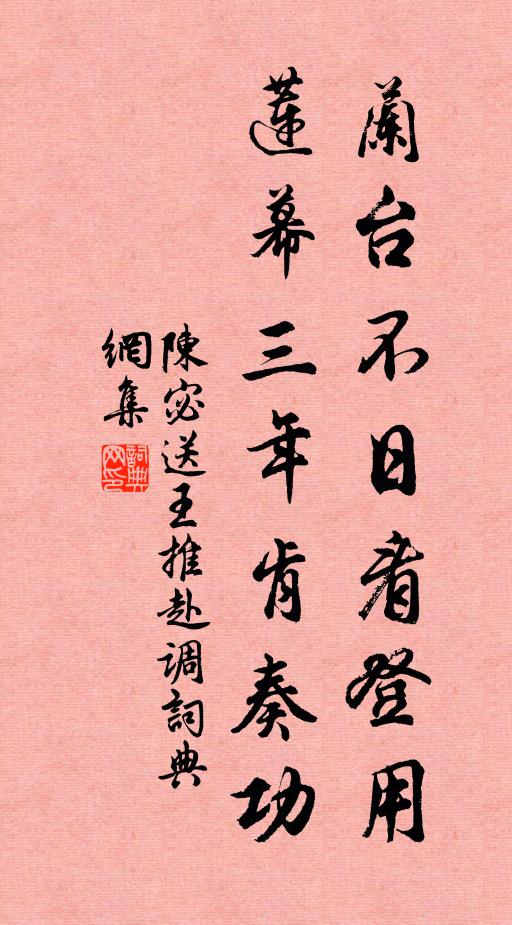 蘭台不日看登用
蓮幕三年肯奏功
陳宓送王推赴调詞典
網集
詞典
网印